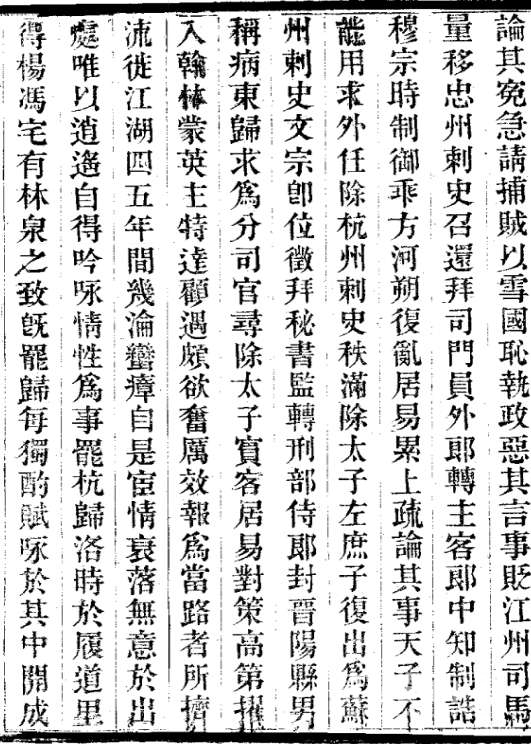 論其冤急請捕賊以雪國恥執政惡其言事貶江州司馬
量移忠州刺史召還拜司門員外郎轉主客郎中知制誥
穆宗時制御乖方河朔復亂居易累上疏論其事天子不
能用求外任除杭州刺史秩滿除太子左庶子復出爲蘇
州刺史文宗卽位徵拜秘書監轉刑部侍郎封晉陽縣男
稱病東歸求爲分司官尋除太子賓客居易對策高第擢
入翰林蒙英主特達顧遇頗欲奮厲效報爲當路者所擠
流徙江湖四五年間幾淪蠻瘴自是宦情衰落無意於出
處唯以逍遙自得吟咏情性爲事罷杭歸洛時於履道里
得楊馮宅有林泉之致旣罷歸每獨酌賦咏於其中開成